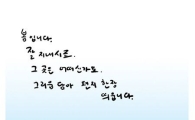 봄입니다.
잘 지내시죠.
그 곳은 어떠신가요.
그리움 담아 편지 한장
띄웁니다.